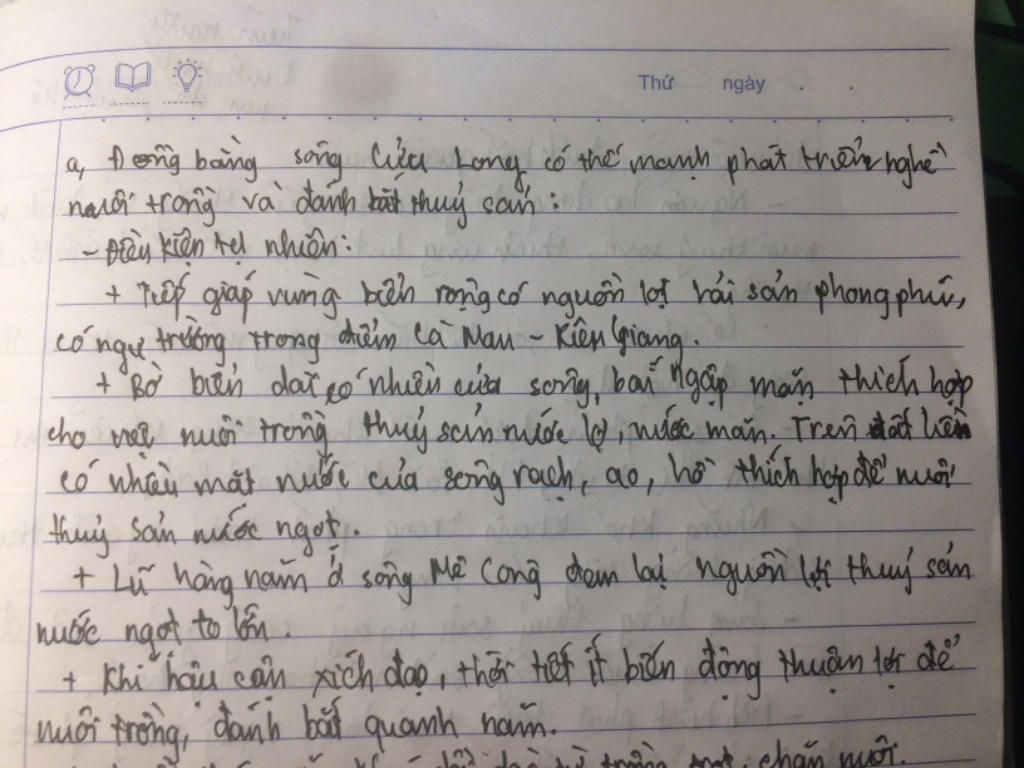 Thứ ngày
a, Đồng bằng sông Cửu Long có thế mạnh phát triển nghề
nuôi trồng và đánh bắt thuỷ sản:
- Điều kiện tự nhiên:
+ Tiếp giáp vùng biển rộng có nguồn lợi hải sản phong phú,
có ngư trường trọng điểm Cà Mau - Kiên Giang.
+ Bờ biển dài có nhiều cửa sông, bãi ngập mặn thích hợp
cho việc nuôi trồng thuỷ sản nước lợ, nước mặn. Trên đất liền
có nhiều mặt nước của sông rạch, ao, hồ thích hợp để nuôi
thuỷ sản nước ngọt.
+ Lũ hàng năm ở sông Mê Công đem lại nguồn lợi thuỷ sản
nước ngọt to lớn.
+ Khí hậu cận xích đạo, thời tiết ít biến động thuận lợi để
nuôi trồng, đánh bắt quanh năm.
trồng trọt, chăn nuôi.